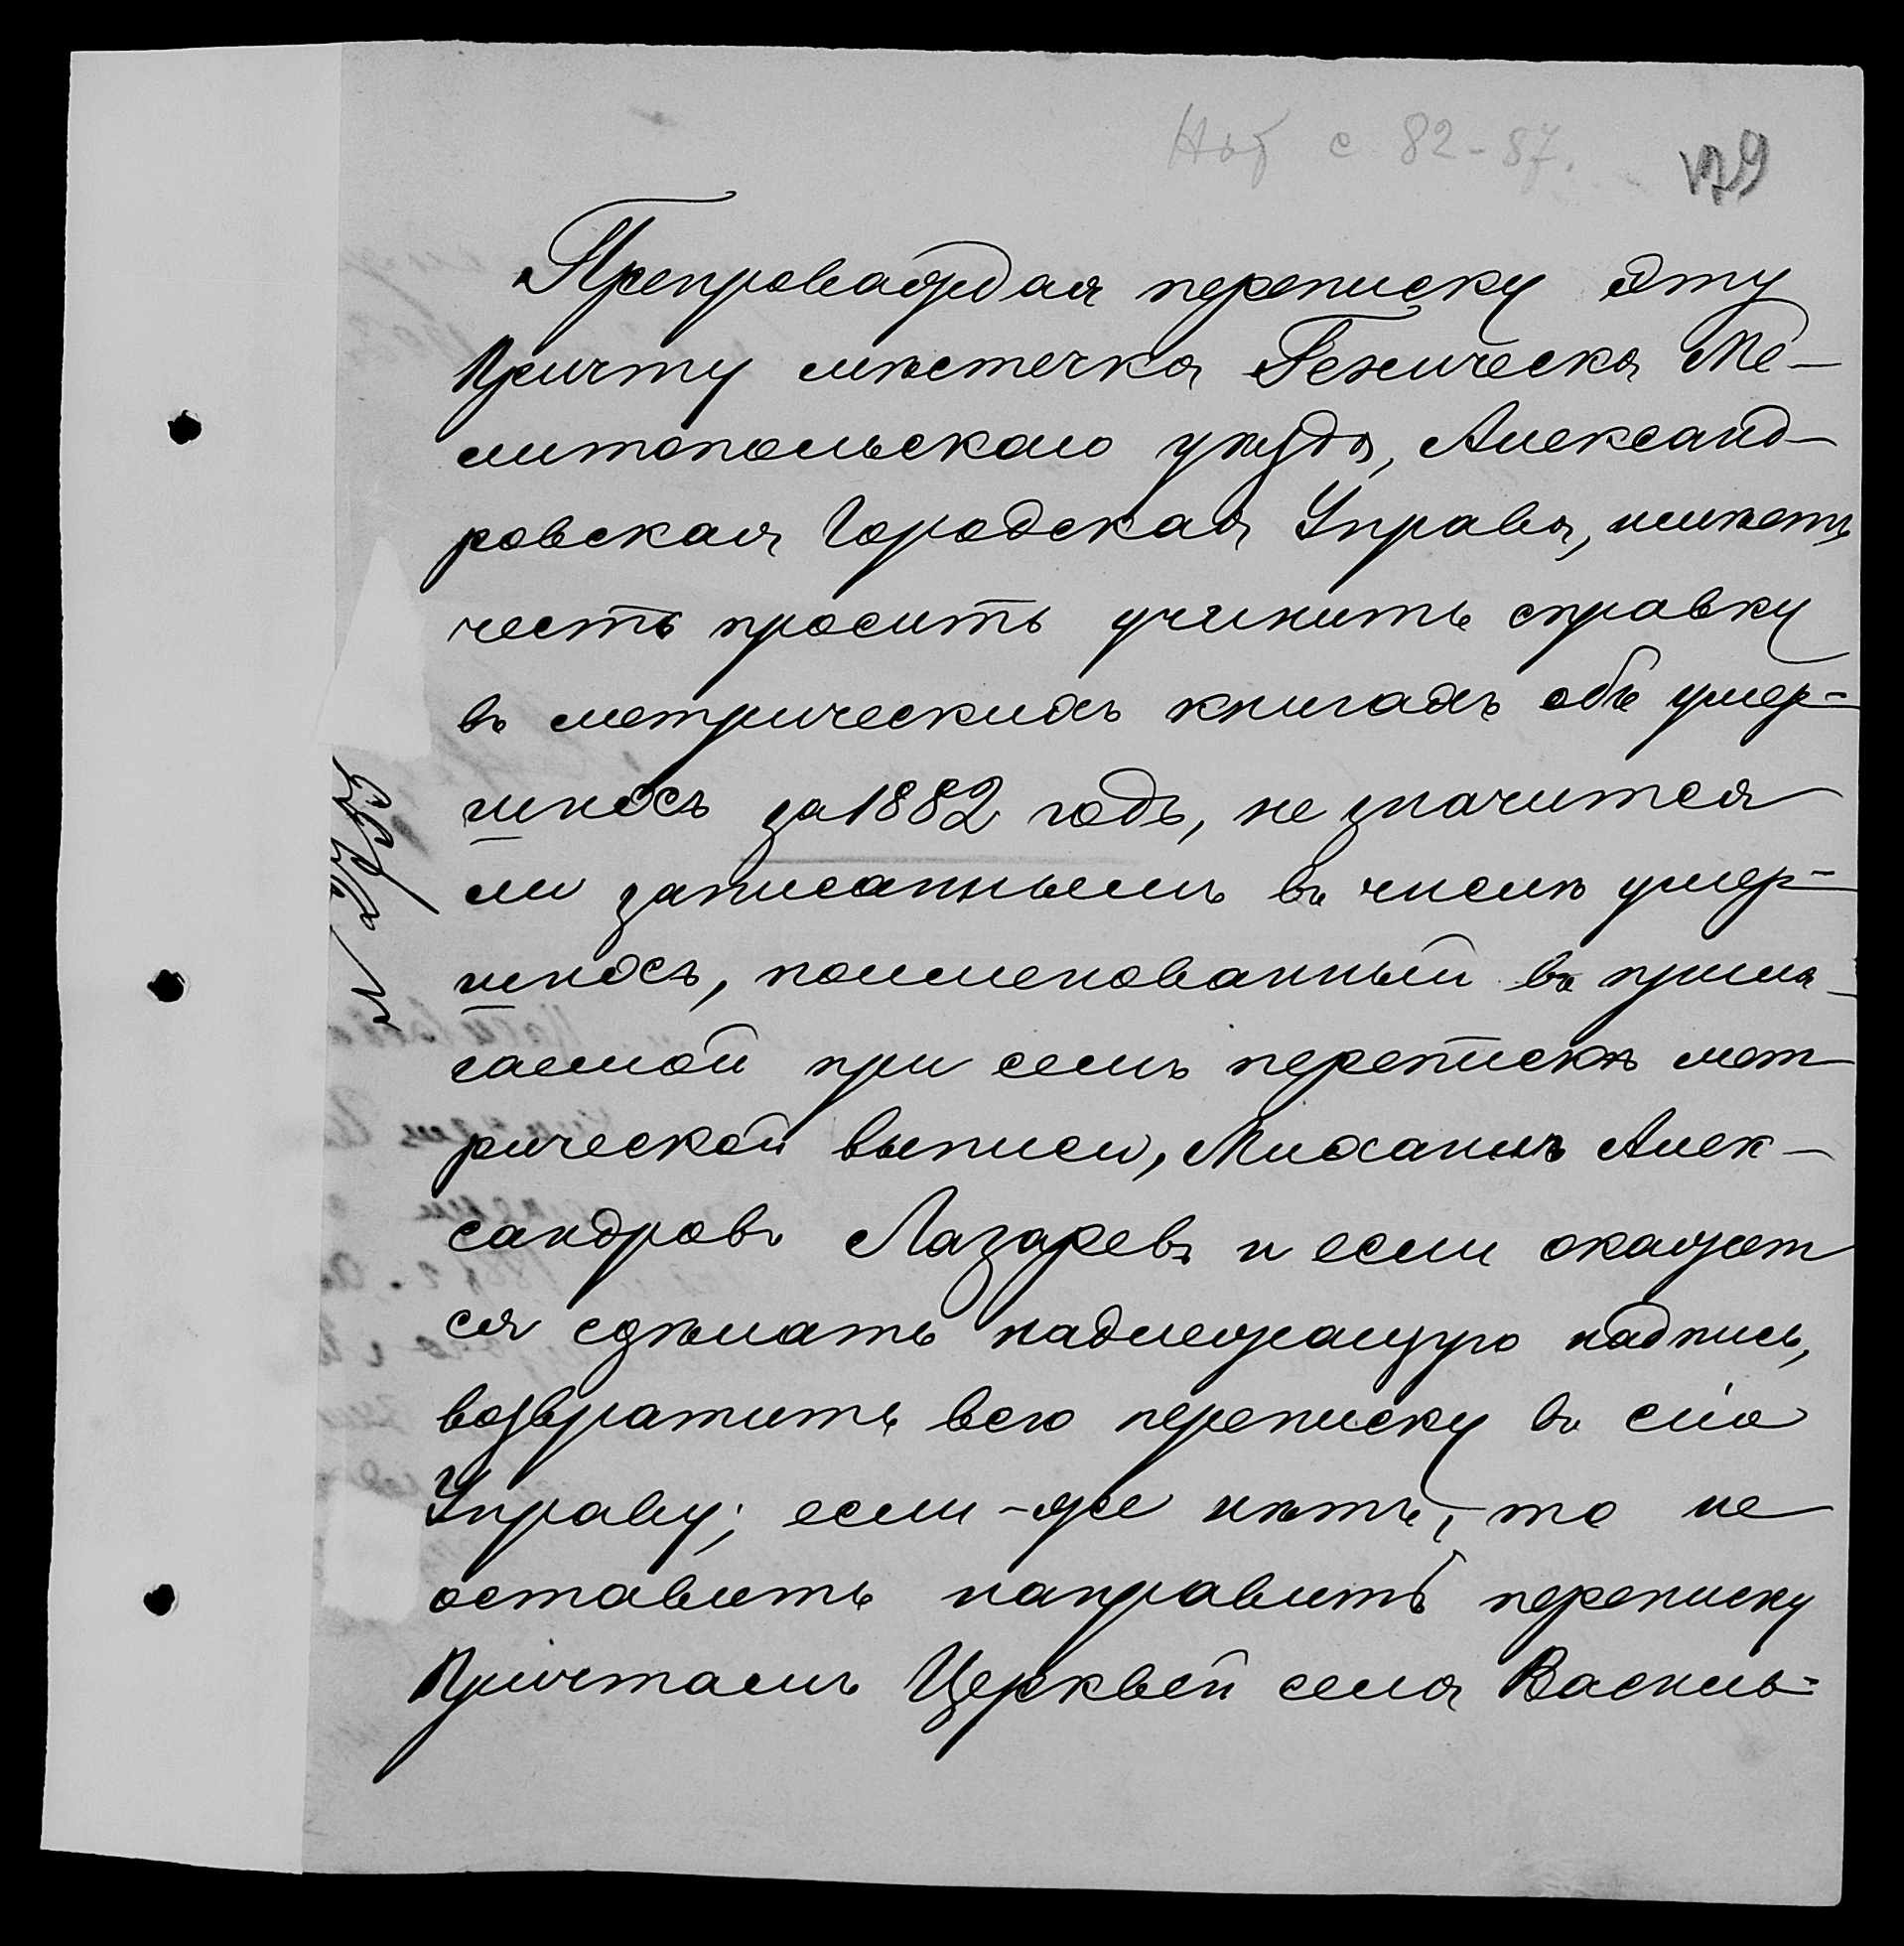 с 82-87.
Препровождая переписку эту
Причту мѣстечка Геническа Ме-
литопольскаго уѣзда, Александ-
ровская Городская Управа, имѣетъ
честь просить учинить справку
въ метрическихъ книгахъ объ умер-
шихъ за 1882 годъ, не значится
ли записаннымъ въ числѣ умер-
шихъ, поименованный въ прила-
гаемой при семъ перепискѣ мет-
рической выписи, Михаилъ Алек-
сандровъ Лазаревъ и если окажет
ся сдѣлать надлежащую надпись,
возвратить всю переписку въ сію
Управу; если-же нѣтъ, - то не
оставить направить переписку
Причтамъ Церквей села Василь-